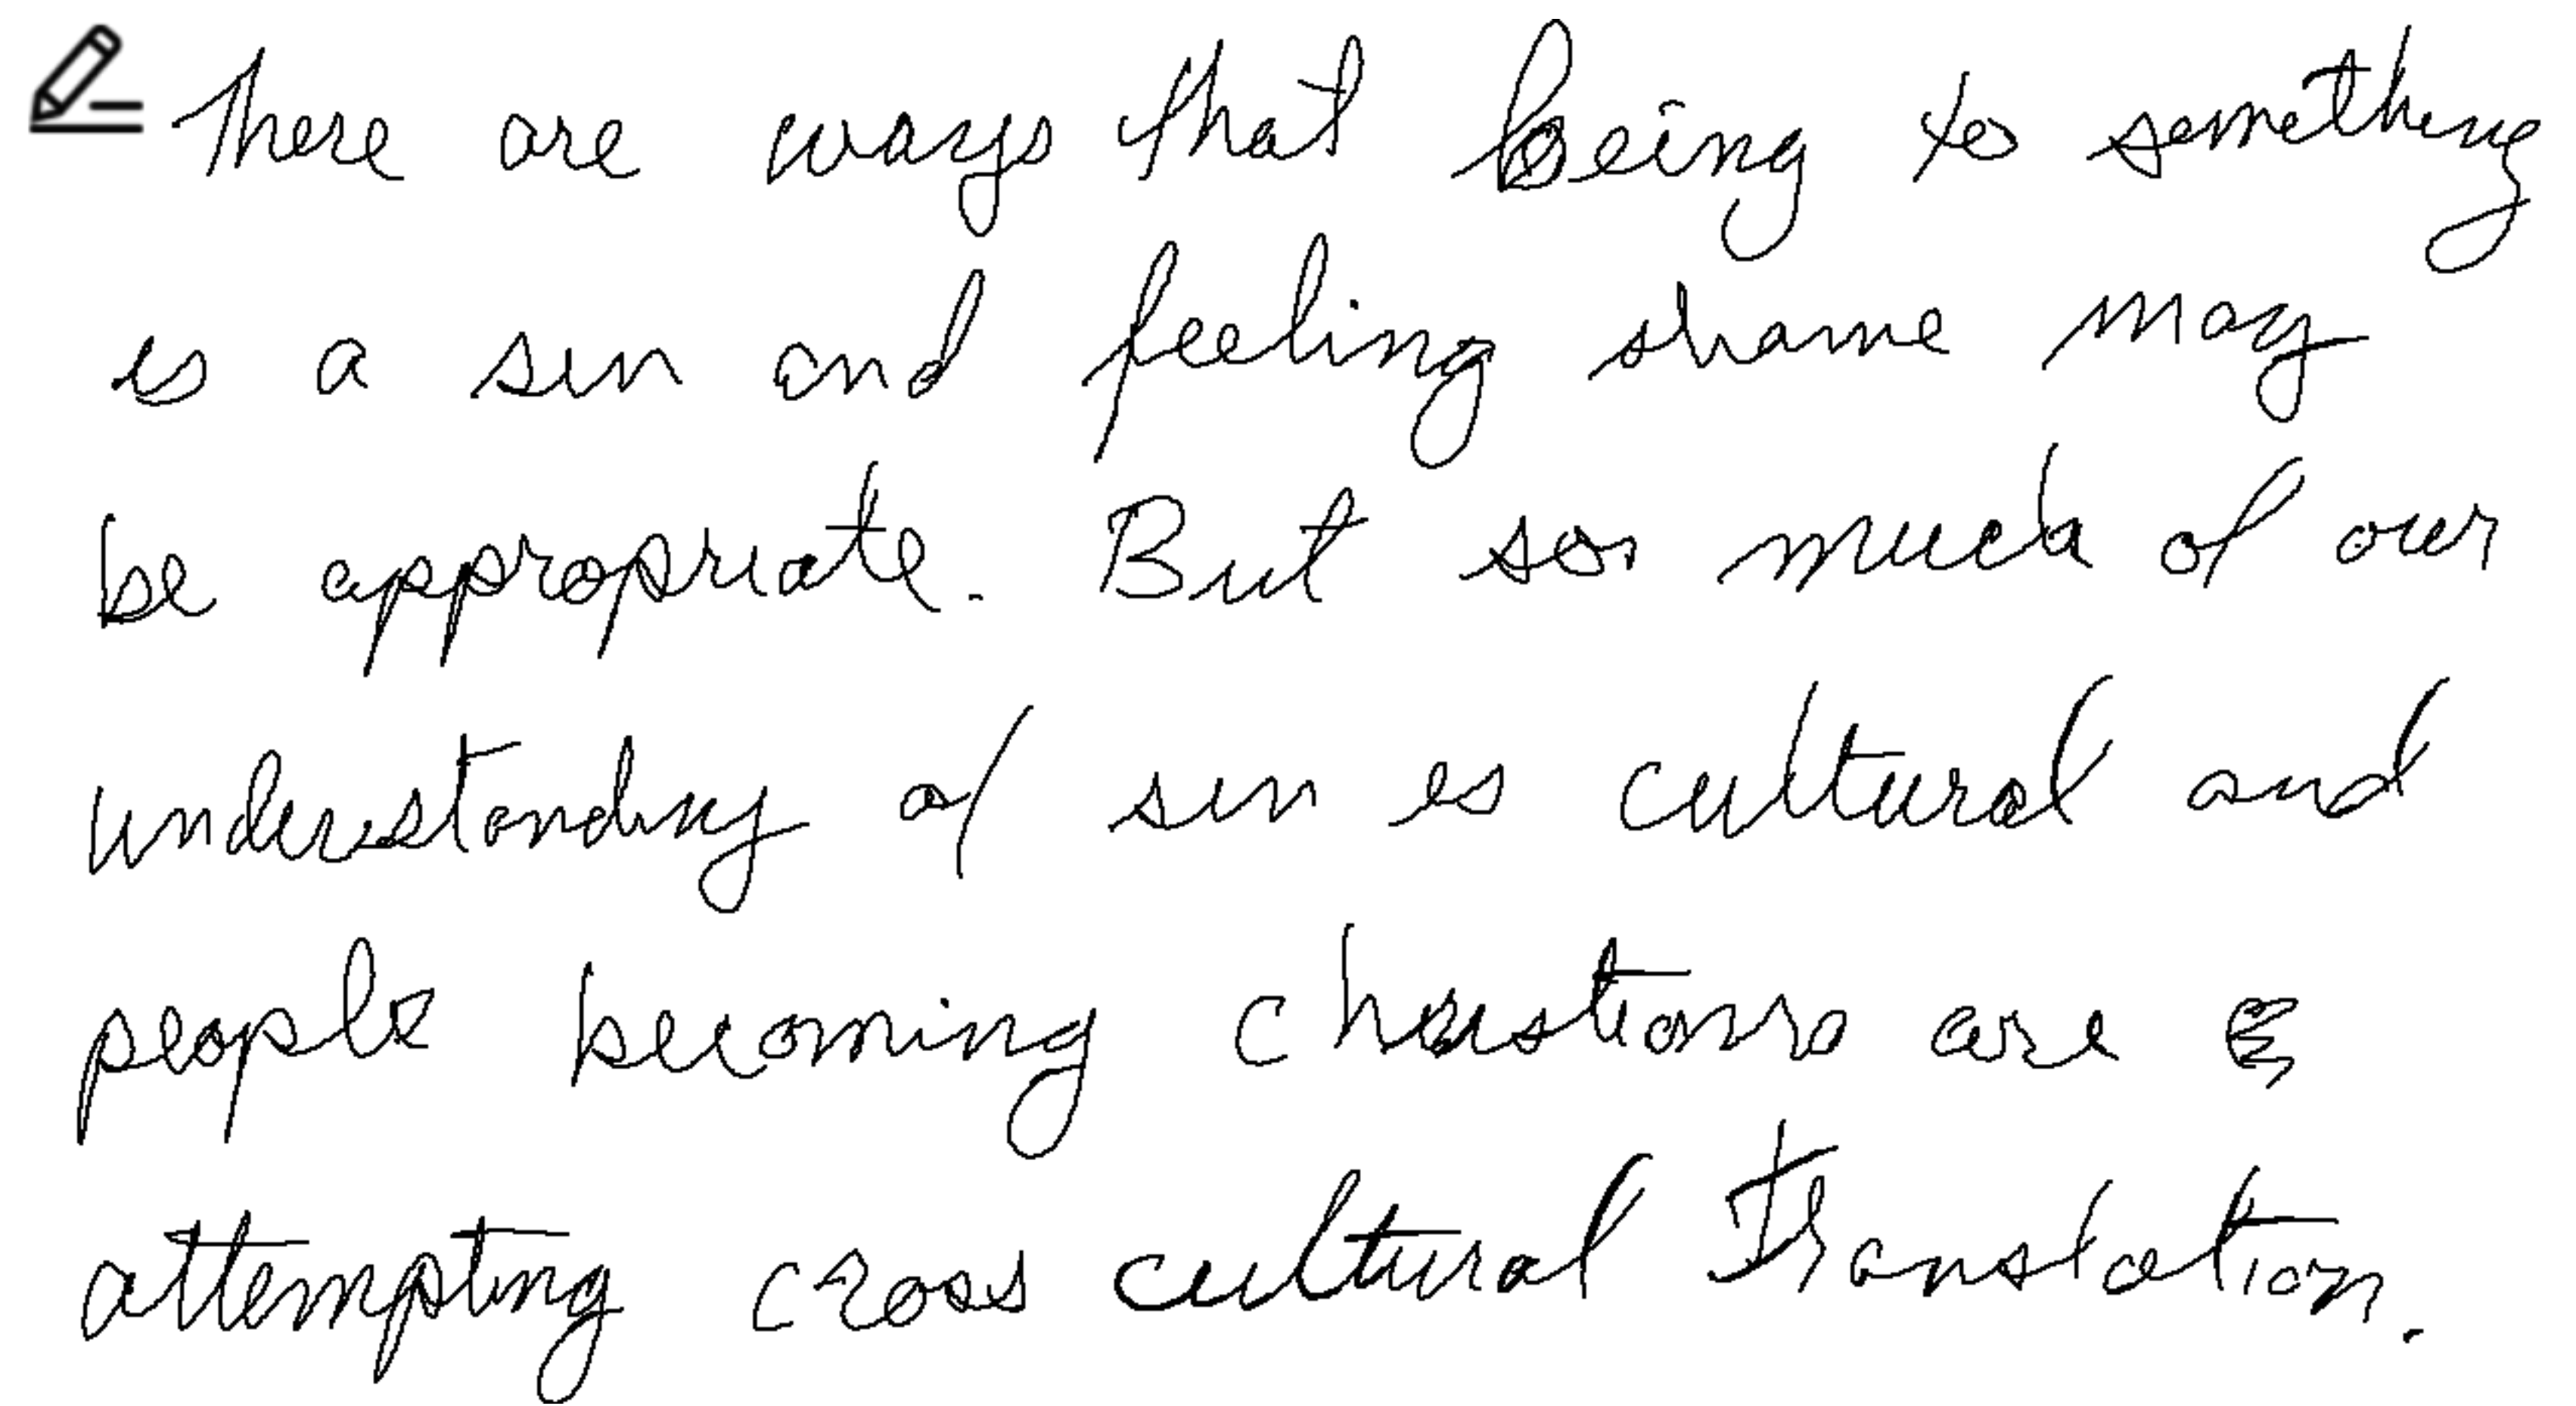 There are ways that being to something
is a sin and feeling shame may
be appropriate. But so much of our
understanding of sin is cultural and
people becoming christians are
attempting cross cultural translation.